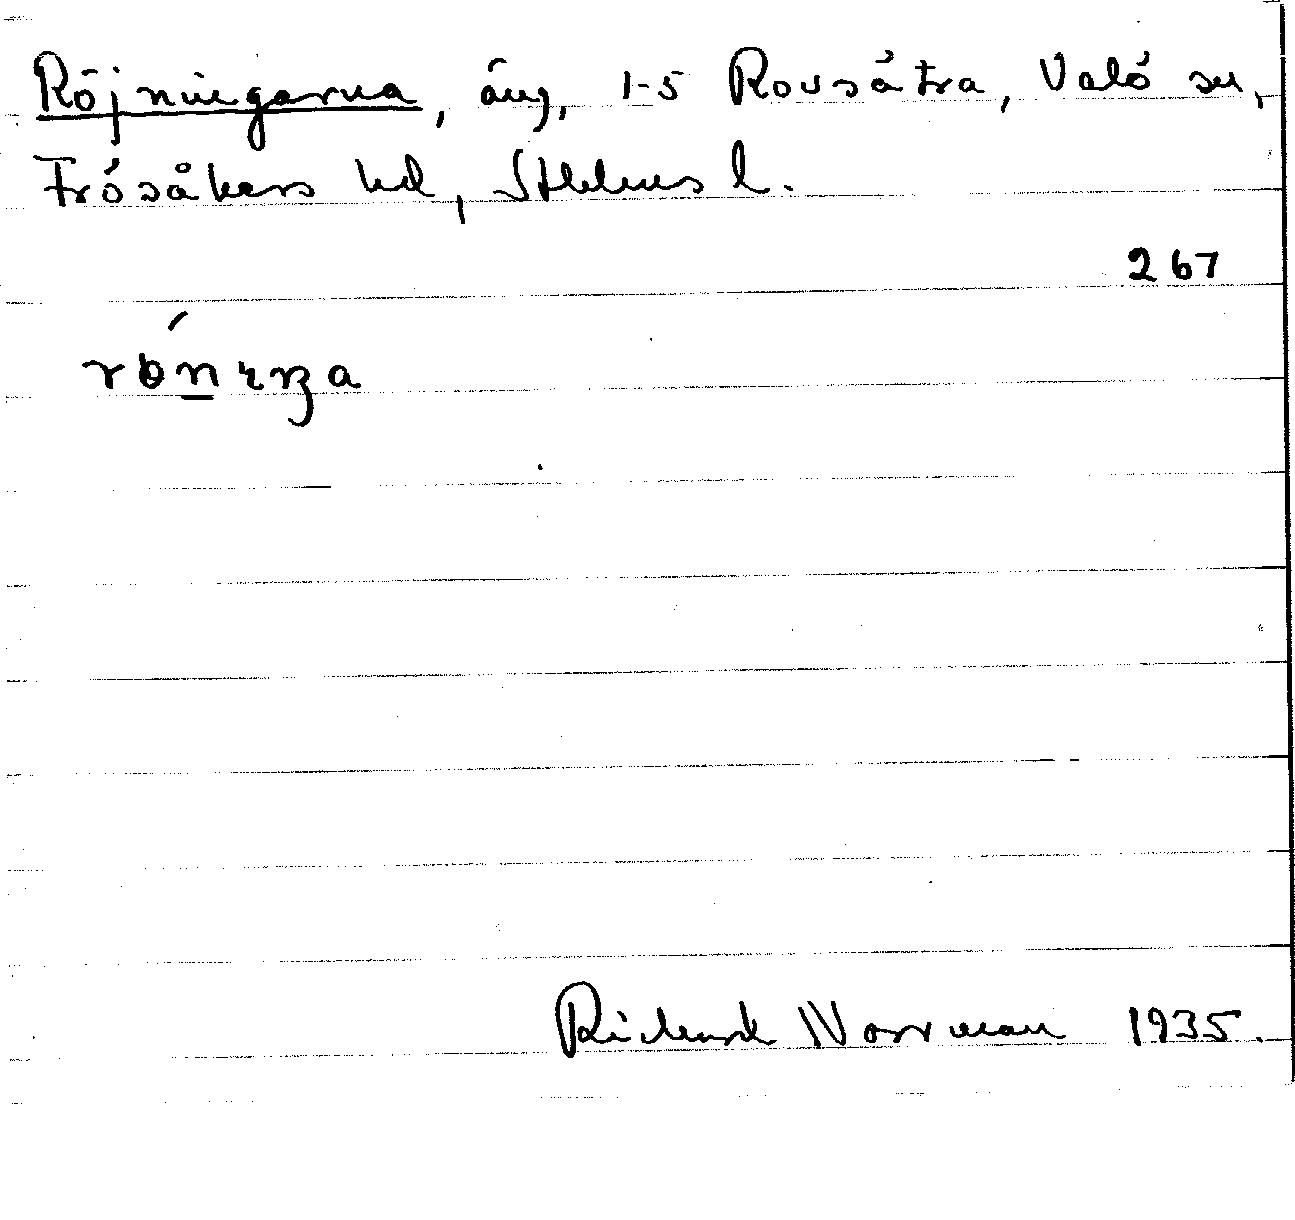 Röjningarna, äng, 1-5 Rovsätra, Valö sn,
Frösåkers hd, Sthlms l.
267
Richard Norrman 1935.